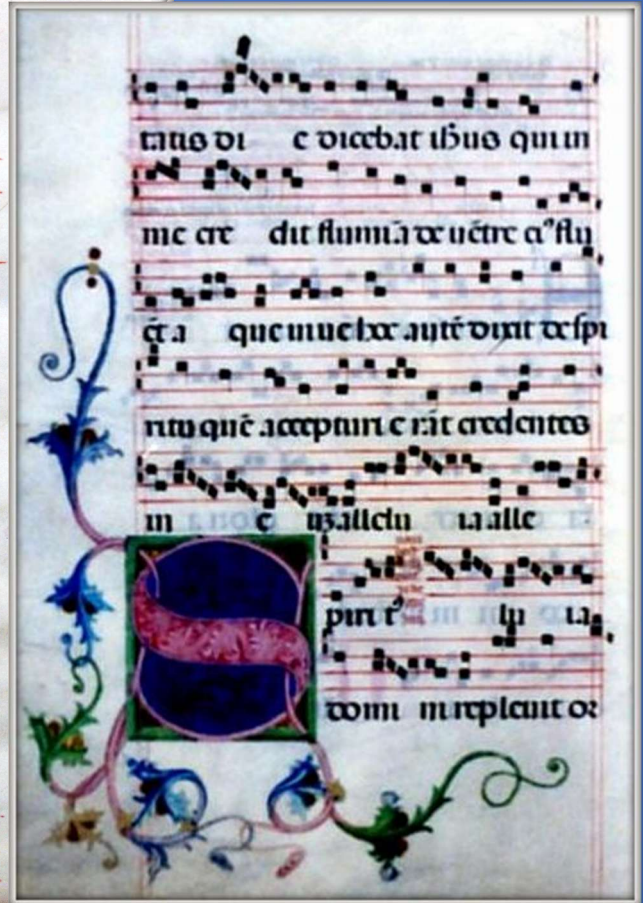 tatis di e dicebat ihus qui in
me cre dit flumiā de uētre ei flu
ēt a que uiue hoc autē dixit de spi
ritu quē accepturi e rāt credentes
in e uʒ alleluia alle
Spirit' lu ia
domi ni repleuit or